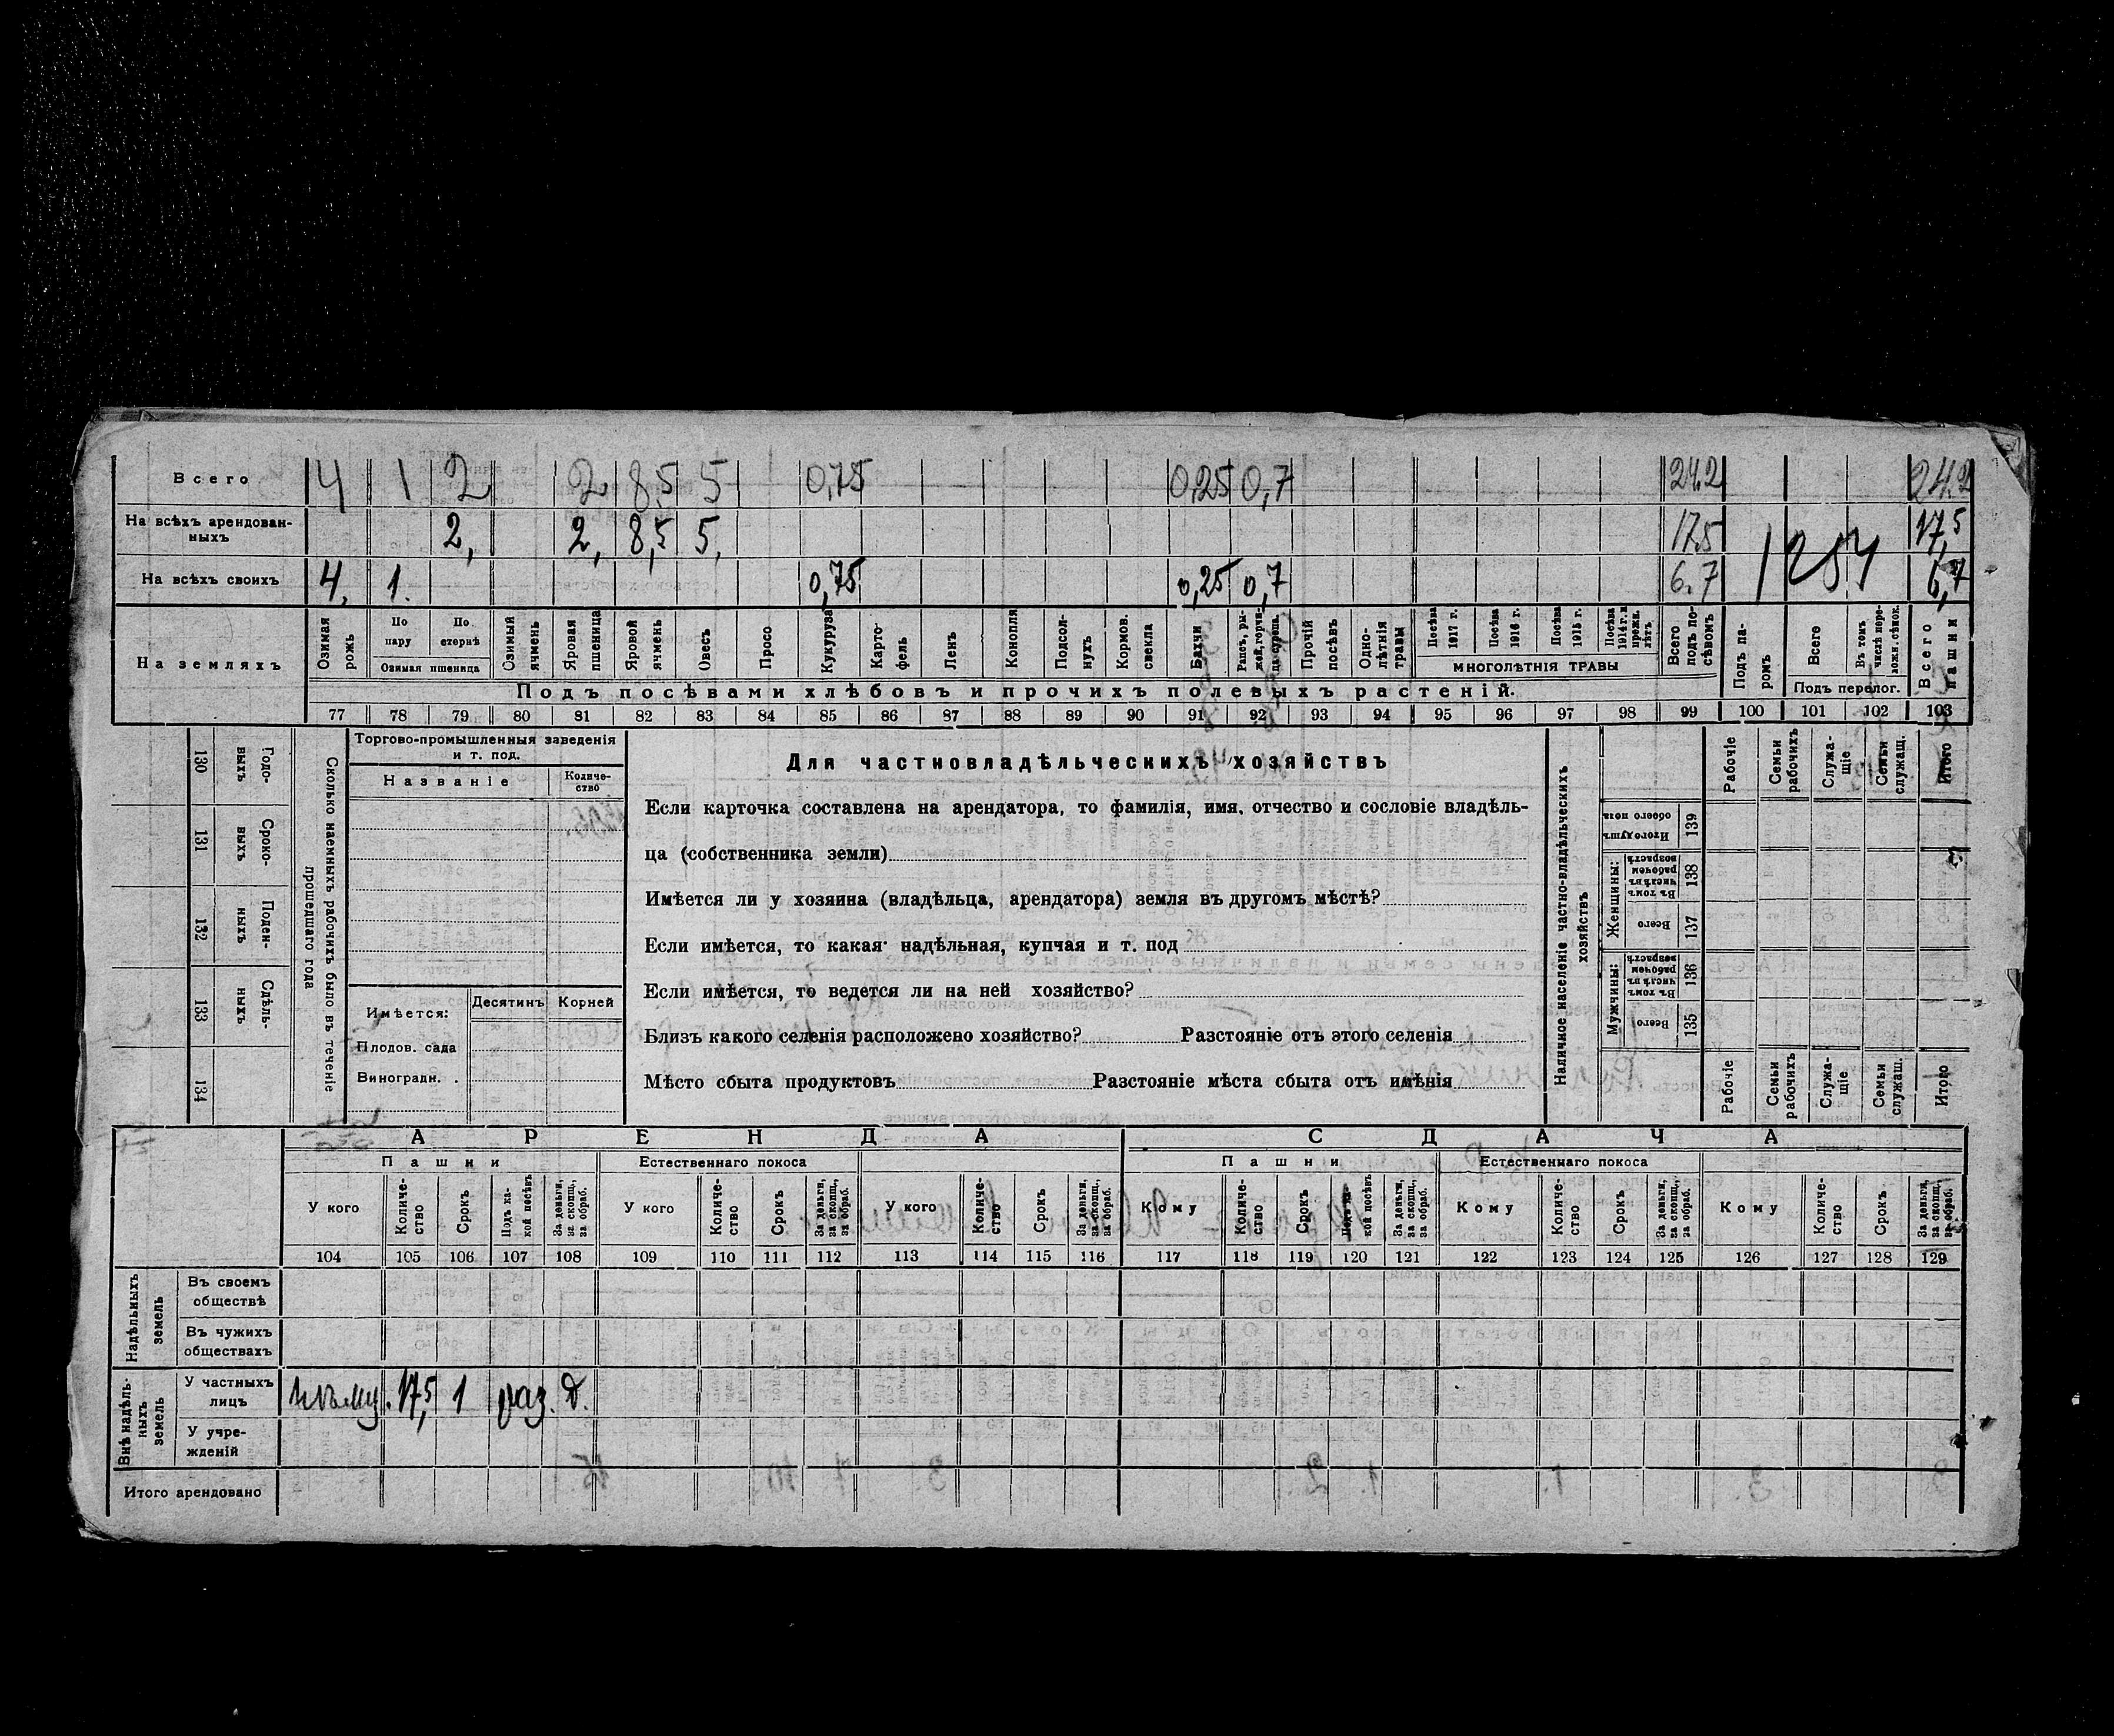 Всего 4 1 2 2 8,5 5 0,75 0,25 0,7 24.2 24.2
На всѣхъ арендован-
ныхъ 2, 2, 8,5 5, 17.5 17,5
На всѣхъ своихъ 4, 1. 0,75 0,25 0,7 6.7 6,7
1254
На земляхъ
Озимая рожь
По пару
По стернѣ
Озимая пшеница
Озимый ячмень
Яровая пшеница
Яровой ячмень
Овесъ
Просо
Кукуруза
Карто-
фель
Ленъ
Конопля
Подсол-
нухъ
Кормов.
свекла
Бахчи
Рапсъ, ры-
жей, горчи-
ца, сурепа.
Прочій
посѣвъ
Одно-
лѣтнія
травы
Посѣва
1917 г.
Посѣва
1916 г.
Посѣва
1915 г.
Посѣва
1914 г. и
прежн.
лѣтъ
МНОГОЛѢТНІЯ ТРАВЫ
Всего
подъ по-
сѣвомъ
Подъ па-
ромъ
Всего
Въ томъ
числѣ пере-
ложн. сѣнок.
Подъ перелог.
Всего
пашни
Подъ посѣвами хлѣбовъ и прочихъ полевыхъ растеній.
77 78 79 80 81 82 83 84 85 86 87 88 89 90 91 92 93 94 95 96 97 98 99 100 101 102 103
130 Годо-
выхъ
131 Сроко-
выхъ
132 Поден-
ныхъ
133 Сдѣль-
ныхъ
134
Сколько наемныхъ рабочихъ было въ теченіе
прошедшаго года
Торгово-промышленныя заведенія
и т. под.
Названіе Количе-
ство
Имѣется: Десятинъ Корней
Плодов. сада
Виноградн. .
Для частновладѣльческихъ хозяйствъ
Если карточка составлена на арендатора, то фамилія, имя, отчество и сословіе владѣль-
ца (собственника земли)
Имѣется ли у хозяина (владѣльца, арендатора) земля въ другомъ мѣстѣ?
Если имѣется, то какая· надѣльная, купчая и т. под
Если имѣется, то ведется ли на ней хозяйство?
Близъ какого селенія расположено хозяйство? Разстояніе отъ этого селенія
Мѣсто сбыта продуктовъ Разстояніе мѣста сбыта отъ имѣнія
Наличное населеніе частно-владѣльческихъ
хозяйствъ
Рабочіе
Семьи
рабочихъ
Служа-
щіе
Семьи
служащ.
Итого
Итого душъ
обоего пола
139
Женщины:
Въ томъ
числѣ въ
рабочемъ
возрастѣ
138
Всего
137
Мужчины:
Въ томъ
числѣ въ
рабочемъ
возрастѣ
136
Всего
135
Рабочіе
Семьи
рабочихъ
Служа-
щіе
Семьи
служащ.
Итого
АРЕНДА СДАЧА
Пашни Естественнаго покоса Пашни Естественнаго покоса
У кого
Количе-
ство
Срокъ
Подъ ка-
кой посѣвъ
За деньги,
за скопщ.,
за обраб.
У кого
Количе-
ство
Срокъ
За деньги,
за скопщ.,
за обраб.
У кого
Количе-
ство
Срокъ
За деньги,
за скопщ.,
за обраб.
Кому
Количе-
ство
Срокъ
Подъ ка-
кой посѣвъ
За деньги,
за скопщ.,
за обраб.
Кому
Количе-
ство
Срокъ
За деньги,
за скопщ.,
за обраб.
Кому
Количе-
ство
Срокъ
За деньги,
за скопщ.,
за обраб.
104 105 106 107 108 109 110 111 112 113 114 115 116 117 118 119 120 121 122 123 124 125 126 127 128 129
Надѣльныхъ
земель
Въ своемъ
обществѣ
Въ чужихъ
обществахъ
Внѣ надѣль-
ныхъ
земель
У частныхъ
лицъ 17,5 1 раз. д.
У учре-
жденій
Итого арендовано